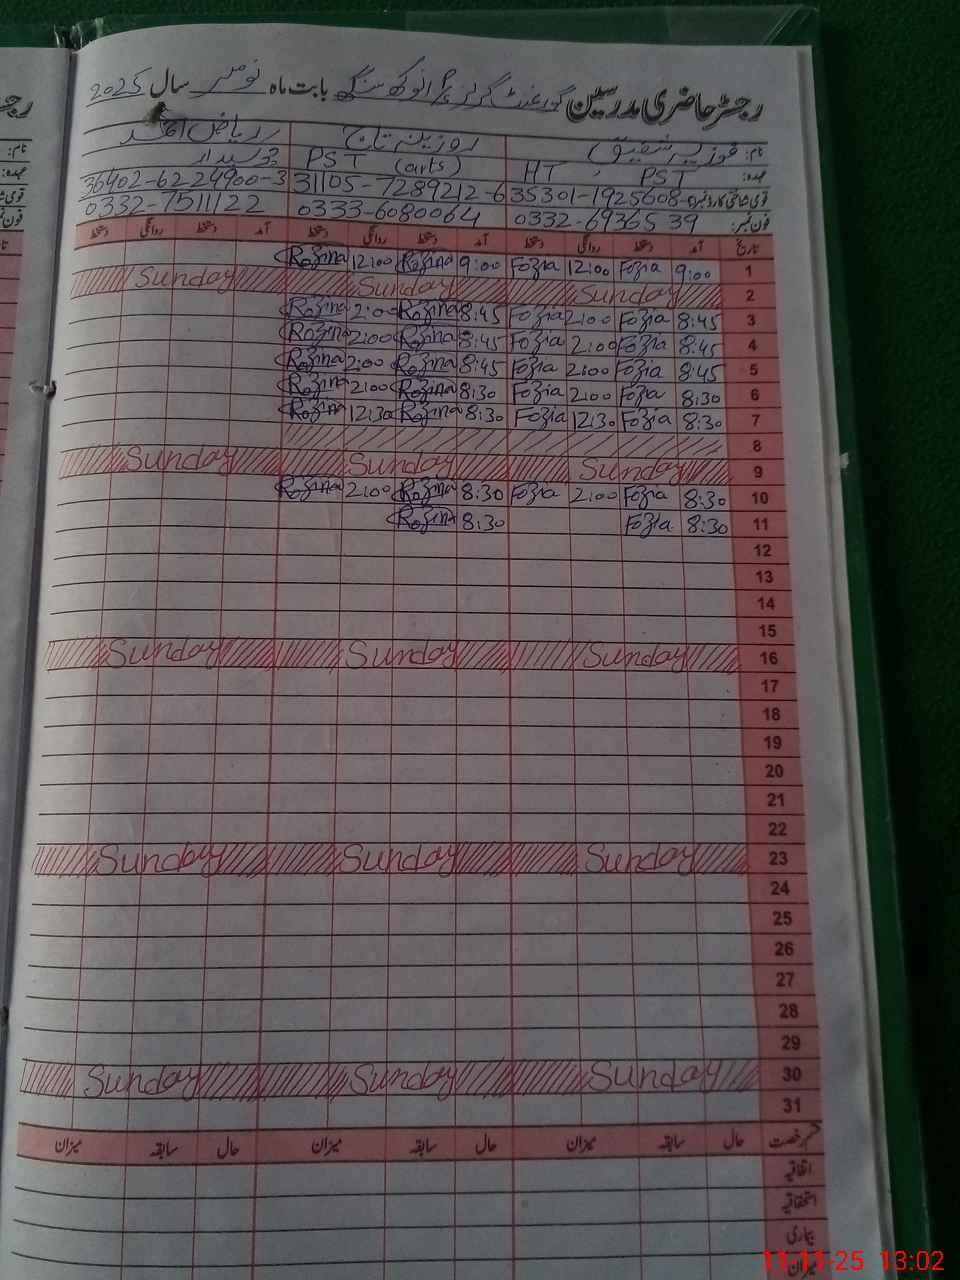 رجسٹر حاضری مدرسین گورنمنٹ گرلز پرائمری سکول انوکھ سنگھ بابت ماہ نومبر سال 2025
نام: فوزیہ شفیق روزینہ تاج ریاض احمد
عہدہ: HT, PST PST (arts) چوکیدار
35301-1925608- 31105-7289212-6 36402-6224900-3
فون نمبر: 0332-6936539 0333-6080064 0332-7511122
تاریخ آمد دستخط روانگی دستخط آمد دستخط روانگی دستخط آمد دستخط روانگی دستخط
1 9:00 Fozia 12:00 Fozia 9:00 Rozina 12:00 Rozina
2 Sunday Sunday Sunday
3 8:45 Fozia 2:00 Fozia 8:45 Rozina 2:00 Rozina
4 8:45 Fozia 2:00 Fozia 8:45 Rozina 2:00 Rozina
5 8:45 Fozia 2:00 Fozia 8:45 Rozina 2:00 Rozina
6 8:30 Fozia 2:00 Fozia 8:30 Rozina 2:00 Rozina
7 8:30 Fozia 12:30 Fozia 8:30 Rozina 12:30 Rozina
8
9 Sunday Sunday Sunday
10 8:30 Fozia 2:00 Fozia 8:30 Rozina 2:00 Rozina
11 8:30 Fozia 8:30 Rozina
12
13
14
15
16 Sunday Sunday Sunday
17
18
19
20
21
22
23 Sunday Sunday Sunday
24
25
26
27
28
29
30 Sunday Sunday Sunday
31
حال سابقہ میزان حال سابقہ میزان حال سابقہ میزان
اتفاقیہ
استحقاقیہ
بیماری
میزان
11-11-25 13:02